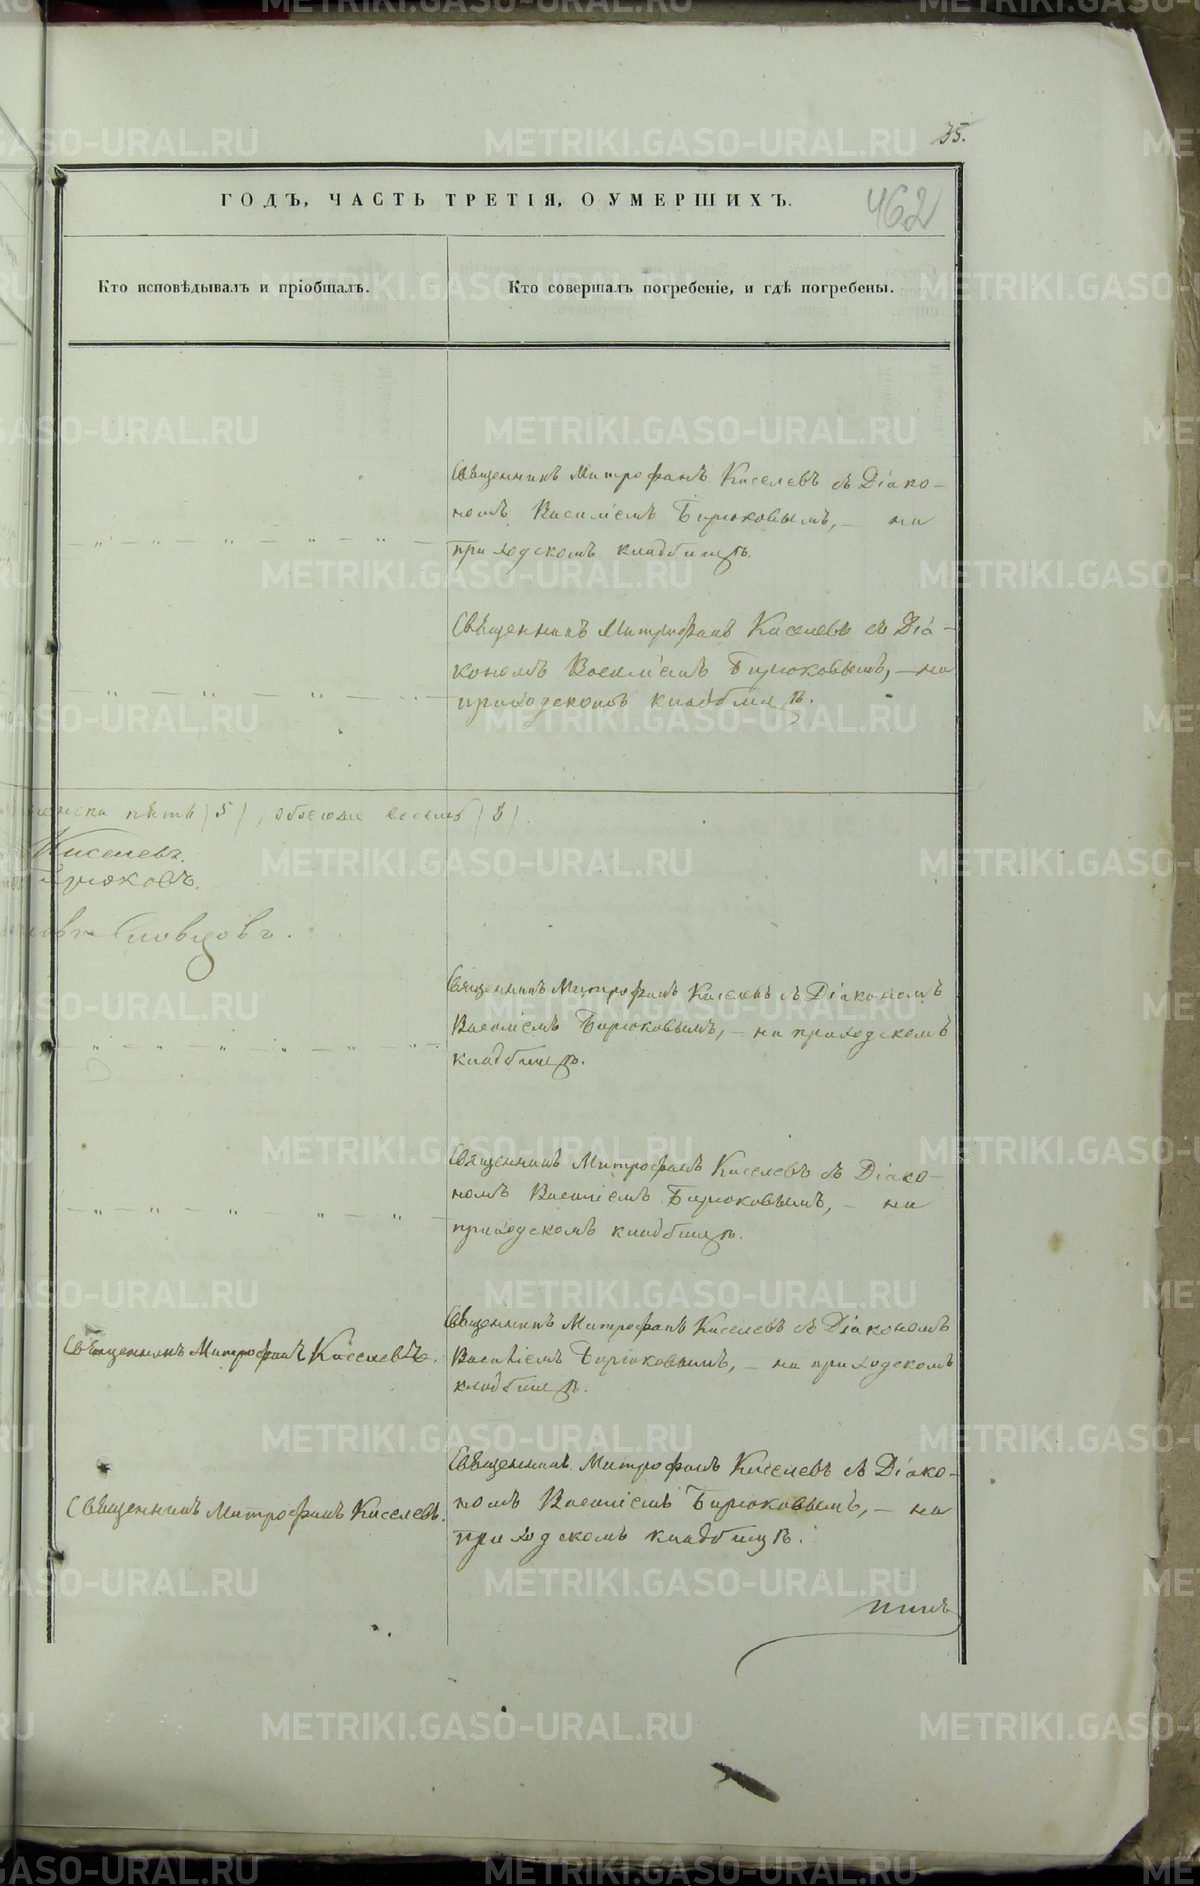 35.
ГОДЪ, ЧАСТЬ ТРЕТІЯ, О УМЕРШИХЪ.
462
Кто исповѣдывалъ и пріобщалъ.
Кто совершалъ погребеніе, и гдѣ погребены.
Священникъ Митрофанъ Киселевъ съ Діако-
номъ Василіемъ Бирюковымъ, – на
приходскомъ кладбищѣ.
Священникъ Митрофанъ Киселевъ съ Діа-
кономъ Василіемъ Бирюковымъ, – на
приходскомъ кладбищѣ.
пять (5), обоего восемь (8).
Киселевъ.
Бирюковъ.
Словцовъ.
Священникъ Митрофанъ Киселевъ съ Діакономъ
Василіемъ Бирюковымъ, – на приходскомъ
кладбищѣ.
Священникъ Митрофанъ Киселевъ съ Діако-
номъ Василіемъ Бирюковымъ, – на
приходскомъ кладбищѣ.
Священникъ Митрофанъ Киселевъ.
Священникъ Митрофанъ Киселевъ съ Діакономъ
Василіемъ Бирюковымъ, – на приходскомъ
кладбищѣ.
Священникъ Митрофанъ Киселевъ.
Священникъ Митрофанъ Киселевъ съ Діако-
номъ Василіемъ Бирюковымъ, – на
приходскомъ кладбищѣ.
METRIKI.GASO-URAL.RU